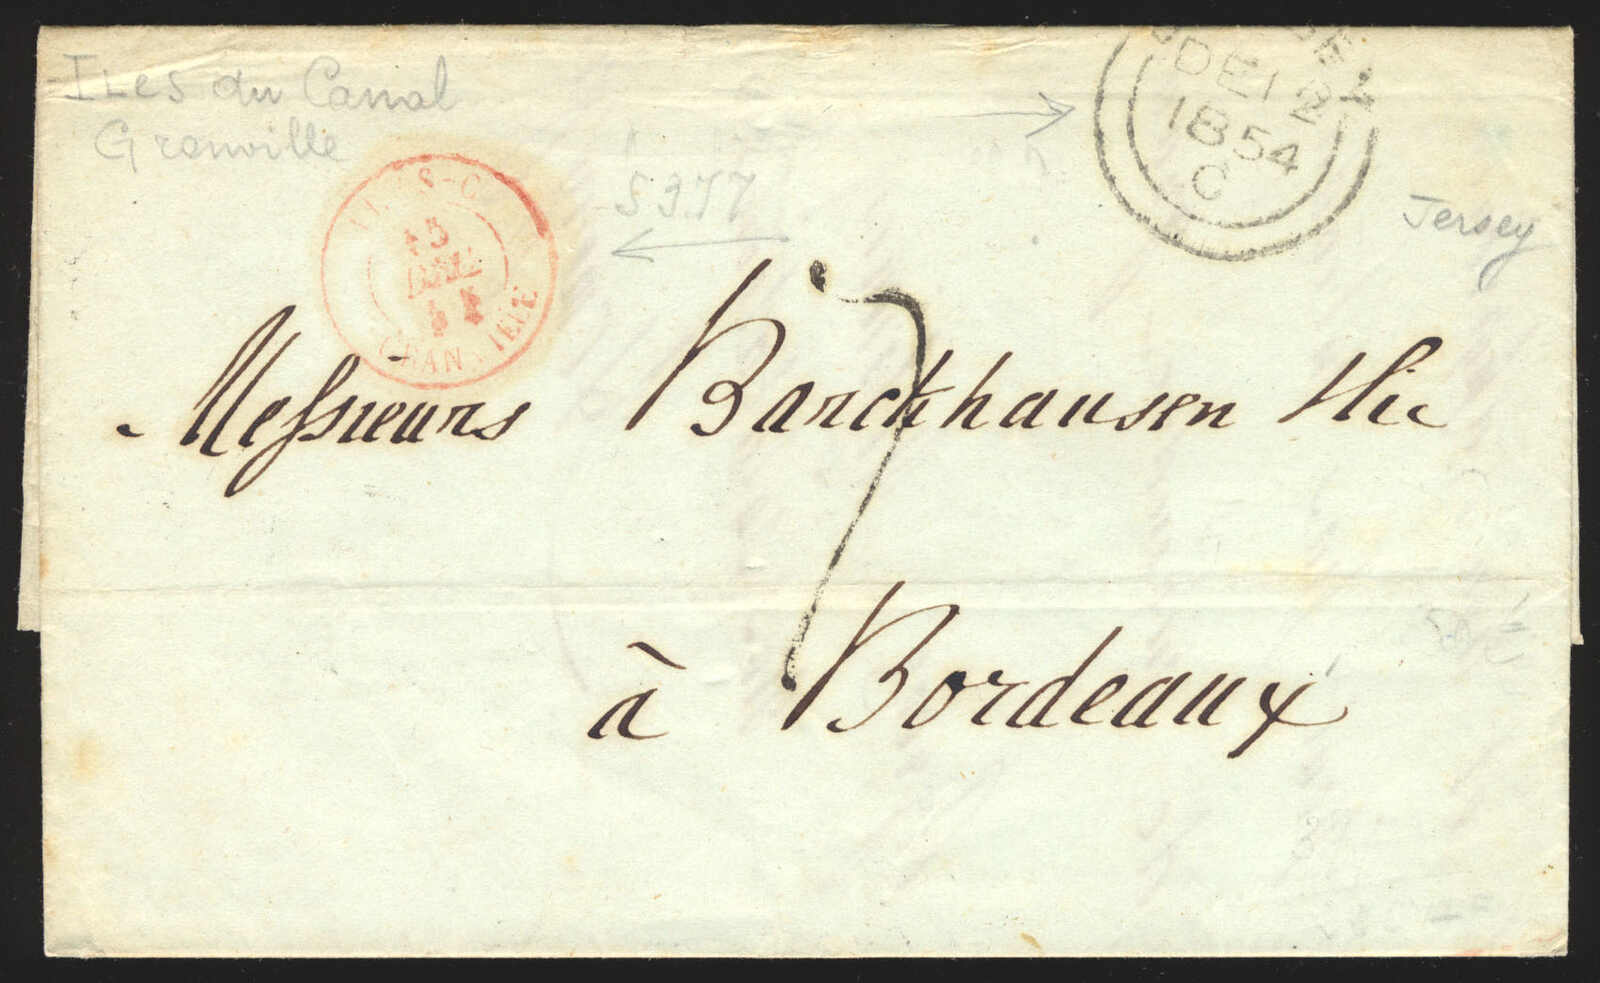 Iles du Canal
Granville
JERSEY
DE 12
1854
C
Jersey
5377
15
DEC
54
GRANVILLE
7
Messieurs Barckhausen &
à Bordeaux